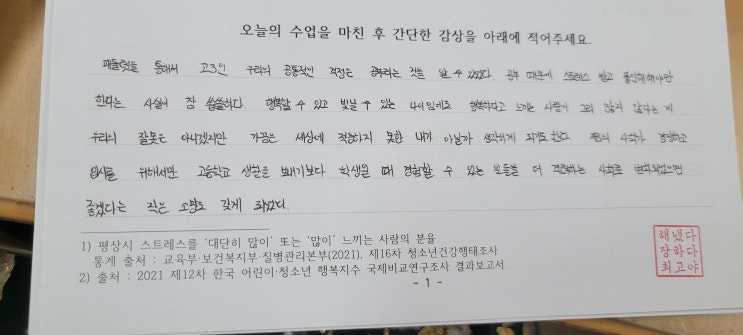 오늘의 수업을 마친 후 간단한 감상을 아래에 적어주세요.
패들렛을 통해서 고3인 우리의 공통적인 걱정은 공부라는 것을 알 수 있었다. 공부 때문에 스트레스 받고 불안해해야만
한다는 사실이 참 씁쓸하다. 행복할 수 있고 빛날 수 있는 나이인데도 행복하다고 느끼는 사람이 그리 많지 않다는 게
우리의 잘못은 아니겠지만 가끔은 세상에 적응하지 못한 내가 아닐까 생각하게 되기도 한다. 사회가 경쟁하고
입시를 위해서만 고등학교 생활을 보내기보다 학생일 때 경험할 수 있는 것들을 더 격려하는 사회로 변화되었으면
좋겠다는 작은 소망도 갖게 되었다.
1) 평상시 스트레스를 ‘대단히 많이’ 또는 ‘많이’ 느끼는 사람의 분율
통계 출처 : 교육부·보건복지부·질병관리본부(2021). 제16차 청소년건강행태조사
2) 출처 : 2021 제12차 한국 어린이·청소년 행복지수 국제비교연구조사 결과보고서
- 1 -
해냈다
장하다
최고야